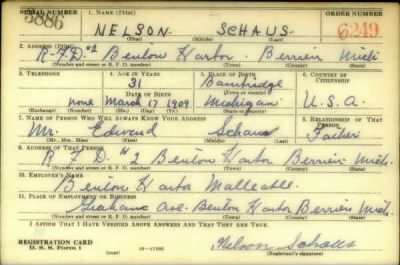 SERIAL NUMBER 1. NAME (Print) ORDER NUMBER
3886 NELSON SCHAUS 6249
(First) (Middle) (Last)
2. ADDRESS (Print)
R.F.D. #2 Benton Harbor Berrien Mich
(Number and street or R. F. D. number) (Town) (County) (State)
3. TELEPHONE 4. AGE IN YEARS 5. PLACE OF BIRTH 6. COUNTRY OF CITIZENSHIP
31 Bainbridge
DATE OF BIRTH (Town or county)
None March 17 1909 Michigan U.S.A.
(Exchange) (Number) (Mo.) (Day) (Yr.) (State or country)
7. NAME OF PERSON WHO WILL ALWAYS KNOW YOUR ADDRESS 8. RELATIONSHIP OF THAT PERSON
Mr. Edward Schaus Father
(Mr., Mrs., Miss) (First) (Middle) (Last)
9. ADDRESS OF THAT PERSON
R.F.D. #2 Benton Harbor Berrien Mich.
(Number and street or R. F. D. number) (Town) (County) (State)
10. EMPLOYER'S NAME
Benton Harbor Malleable.
11. PLACE OF EMPLOYMENT OR BUSINESS
Graham Ave. Benton Harbor Berrien Mich.
(Number and street or R. F. D. number) (Town) (County) (State)
I AFFIRM THAT I HAVE VERIFIED ABOVE ANSWERS AND THAT THEY ARE TRUE.
REGISTRATION CARD
D. S. S. Form 1 Nelson Schaus
(Registrant's signature)